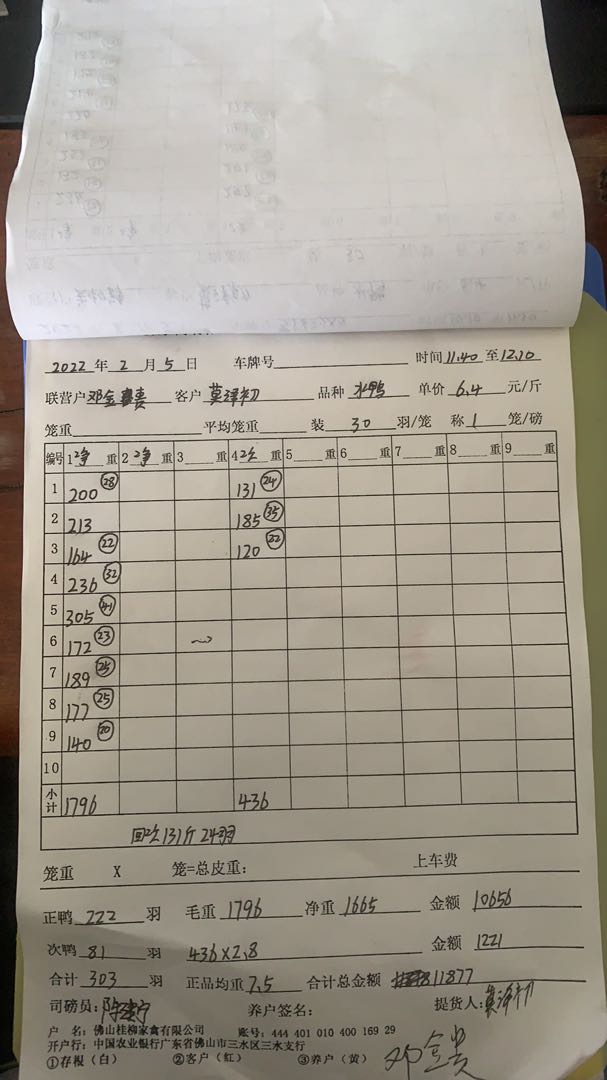 2022 年 2 月 5 日 车牌号 时间 11.40 至 12.10
联营户 邓金贵 客户 莫泽初 品种 水鸭 单价 6.4 元/斤
笼重 平均笼重 装 30 羽/笼 称 1 笼/磅
编号 1 净 重 2 净 重 3 重 4 次 重 5 重 6 重 7 重 8 重 9 重
1 200 28 131 24
2 213 185 35
3 164 22 120 22
4 236 32
5 305 41
6 172 23
7 189 25
8 177 25
9 140 20
10
小计 1796 436
回次131斤24羽
笼重 X 笼=总皮重: 上车费
正鸭 222 羽 毛重 1796 净重 1665 金额 10656
次鸭 81 羽 436x2.8 金额 1221
合计 303 羽 正品均重 7.5 合计总金额 11877
司磅员: 养户签名: 提货人: 莫泽初
户 名: 佛山桂柳家禽有限公司 账号: 444 401 010 400 169 29
开户行: 中国农业银行广东省佛山市三水区三水支行
①存根（白） ②客户（红） ③养户（黄） 邓金贵